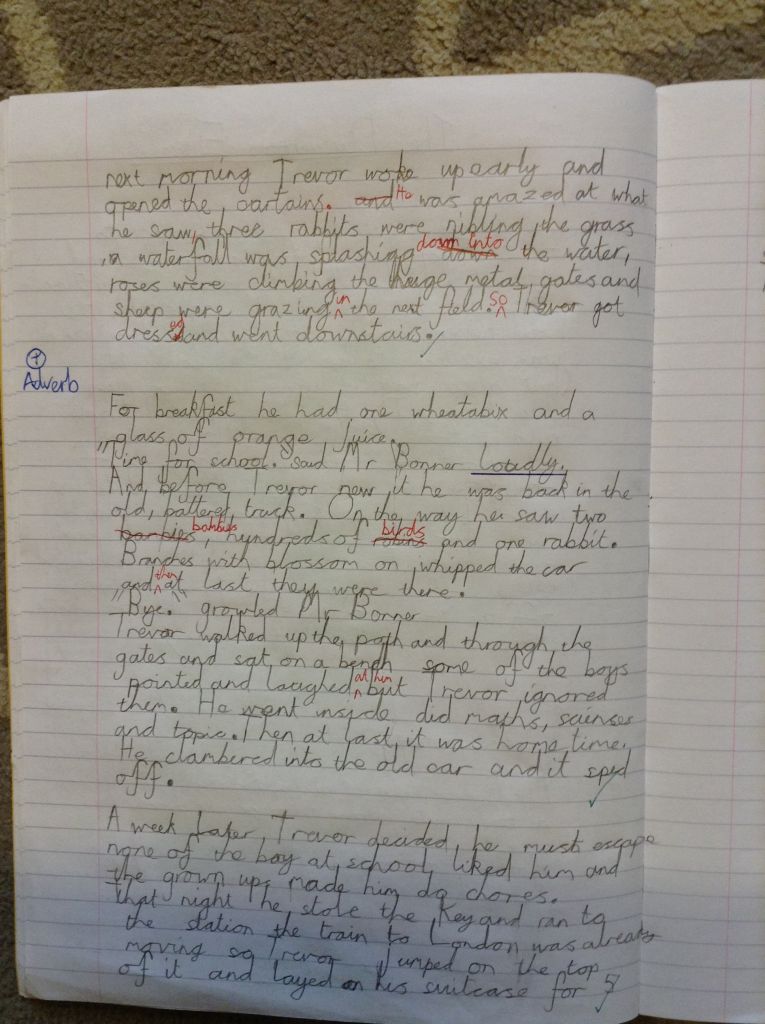 next morning Trevor woke up early and
opened the curtains. and He was amazed at what
he saw, three rabbits were nibling the grass
a waterfall was splashing down into the water,
roses were climbing the huge metal gates and
sheep were grazing in the next field. So Trevor got
dressed and went downstairs.
+
Adverb
For breakfast he had one wheatabix and a
glass of orange juice.
"Time for school. said Mr Bonner Loudly.
And before Trevor new it he was back in the
old, battered, truck. On the way he saw two
bambys, hundreds of robins birds and one rabbit.
Branches with blossom on whipped the car
and then at last they were there.
"Bye." growled Mr Bonner
Trevor walked up the path and through the
gates and sat on a bench some of the boys
pointed and laughed at him but Trevor ignored
them. He went inside did maths, scienses
and topic. Then at last it was home time.
He clambered into the old car and it sped
off.
A week later Trevor decided he must escape
none of the boy at school liked him and
the grown ups made him do chores.
that night he stole the key and ran to
the station the train to London was already
moving so Trevor jumped on the top
of it and layed on his suitcase for 5